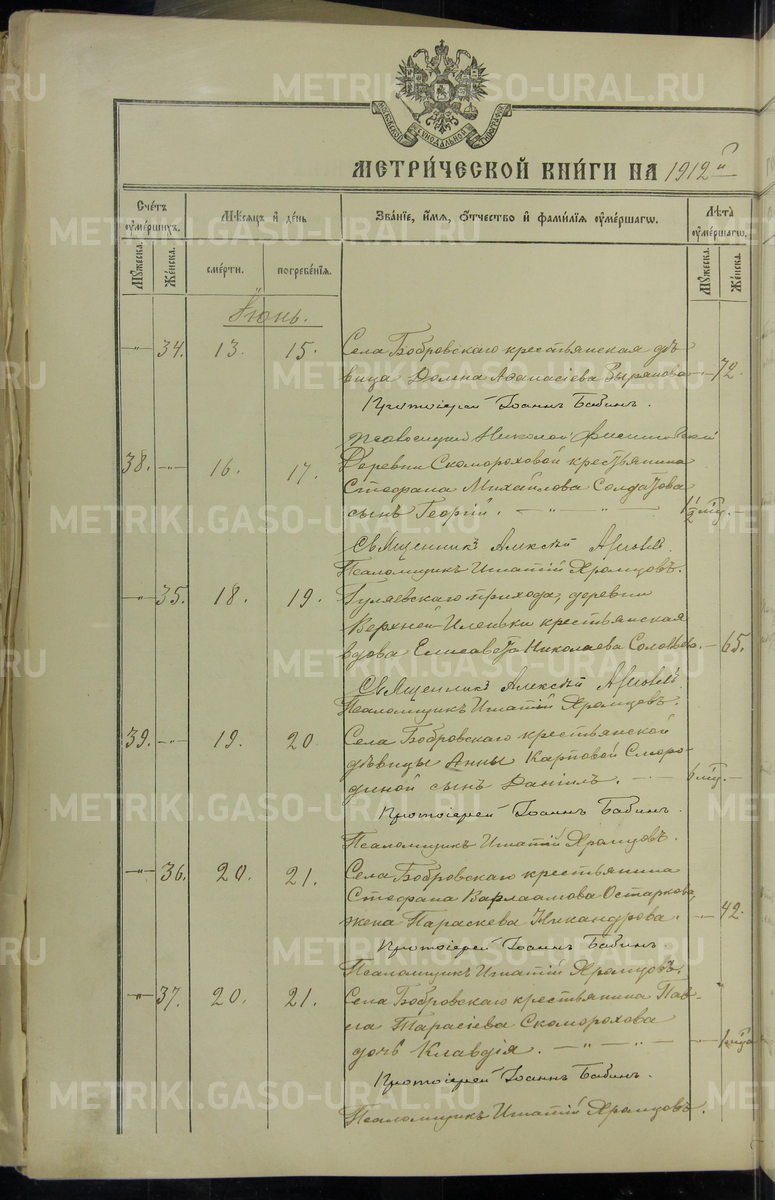 МЕТРИ́ЧЕСКОЙ КНИ́ГИ НА 1912 й
Счетъ оумершихъ.
Мѣсяцъ и день
Званіе, имя, отчество и фамилія оумершагѡ.
Лѣта оумершагѡ.
Мужеска. Женска.
смерти. погребенія.
Мужеска. Женска.
Іюнь.
—"— 34. 13. 15. Села Бобровскаго крестьянская дѣ
вица Домна Аѳанасіева Зырянова — 72.
Протоіерей Іоаннъ Бабинъ.
псаломщикъ Николай
38. —"— 16. 17. Деревни Скомороховой крестьянина
Стефана Михайлова Солдатова
сынъ Георгій. —"— —"— 1/2 мѣс. —
Священникъ Алексѣй
Псаломщикъ Игнатій Храмцовъ.
—"— 35. 18. 19. Гуляевскаго прихода, деревни
Верхней Иленьки крестьянская
вдова Елисавета Николаева — 65.
Священникъ Алексѣй
Псаломщикъ Игнатій Храмцовъ.
39. —"— 19. 20 Села Бобровскаго крестьянской
дѣвицы Анны Карповой Сморо-
диной сынъ Даніилъ. — 6 мѣс. —
Протоіерей Іоаннъ Бабинъ.
Псаломщикъ Игнатій Храмцовъ.
—"— 36. 20. 21. Села Бобровскаго крестьянина
Стефана Варлаамова
жена Параскева Никандрова. — 42.
Протоіерей Іоаннъ Бабинъ
Псаломщикъ Игнатій Храмцовъ.
—"— 37. 20. 21. Села Бобровскаго крестьянина Пав-
ла Тарасіева Скоморохова
дочь Клавдія. —"— —"— — 1 мѣсяца
Протоіерей Іоаннъ Бабинъ.
Псаломщикъ Игнатій Храмцовъ.
METRIKI.GASO-URAL.RU